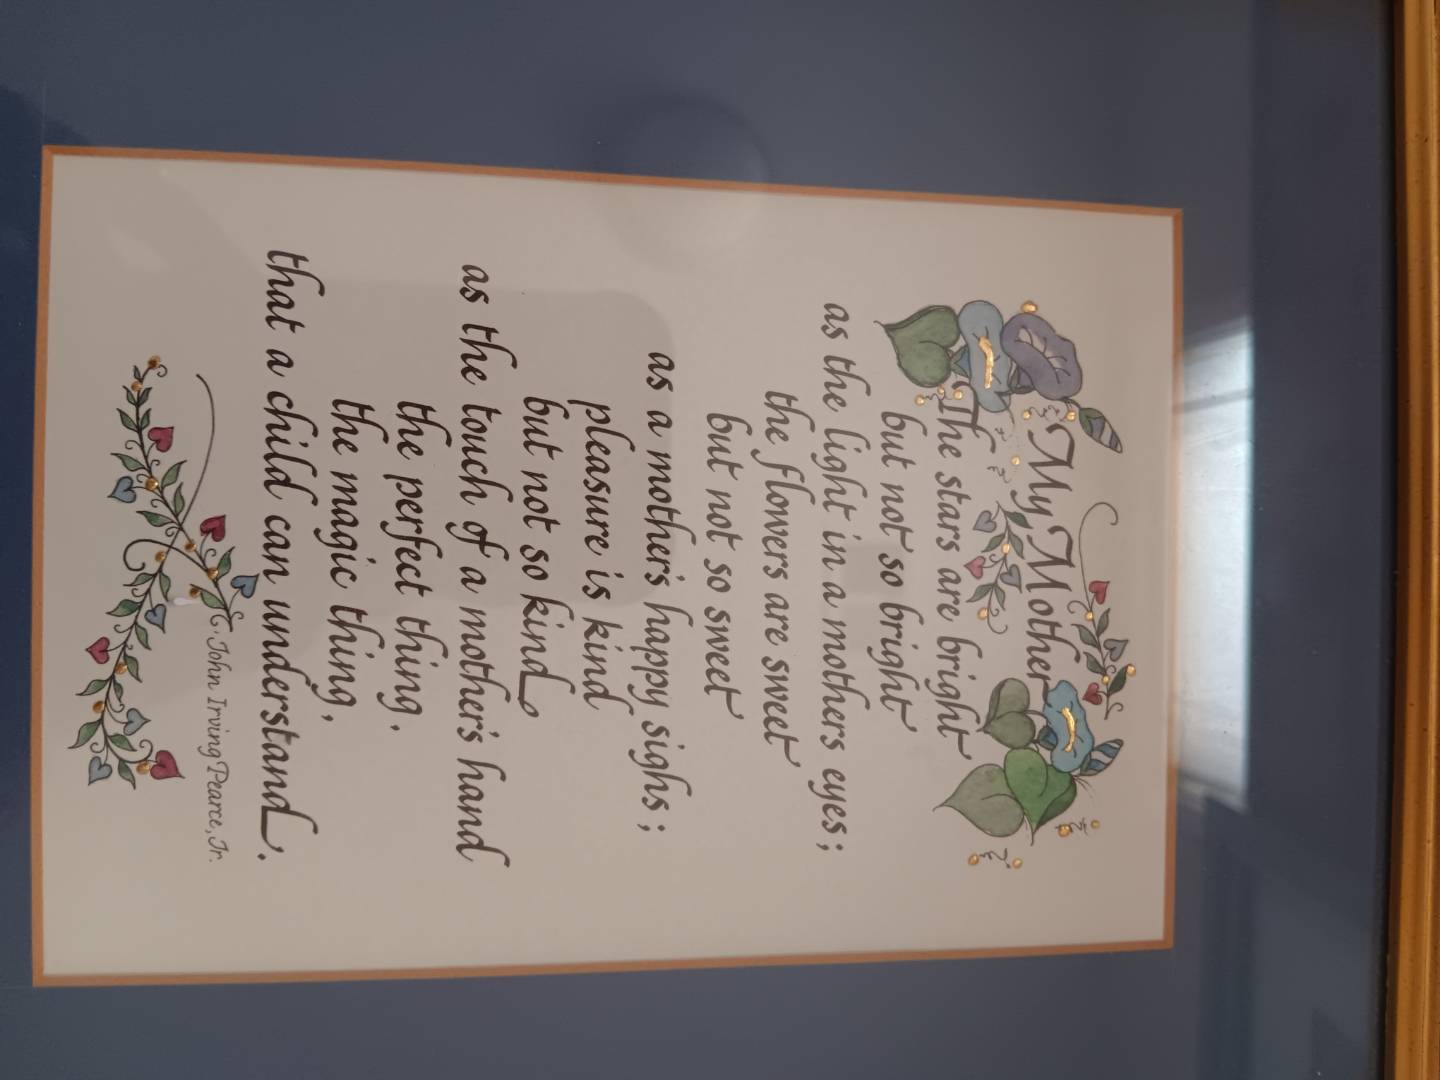 My Mother
The stars are bright
but not so bright
as the light in a mothers eyes;
the flowers are sweet
but not so sweet
as a mother's happy sighs;
pleasure is kind
but not so kind
as the touch of a mother's hand
the perfect thing.
the magic thing,
that a child can understand.
John Irving Pearce, Jr.